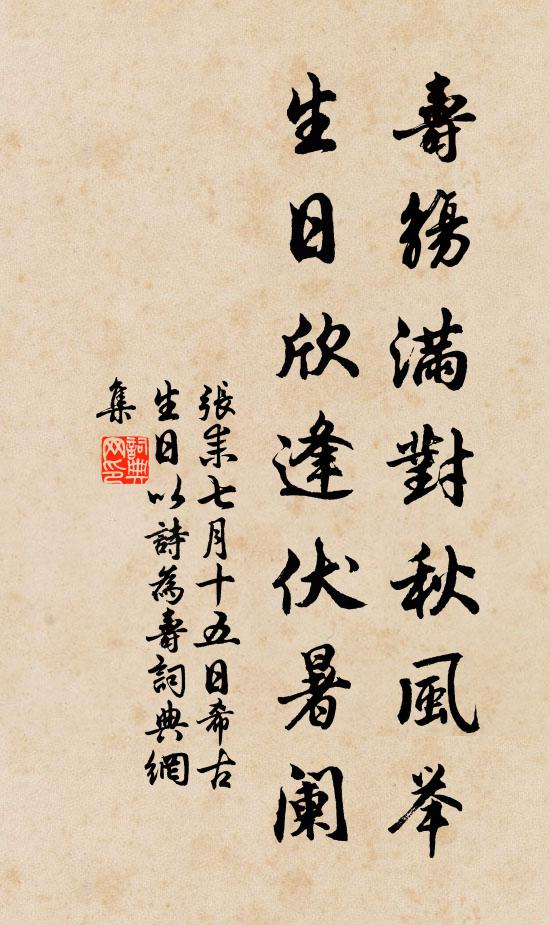 壽觴滿對秋風举
生日欣逢伏暑阑
張耒七月十五日希古
生日以詩為壽詞典網
集
詞典
网印